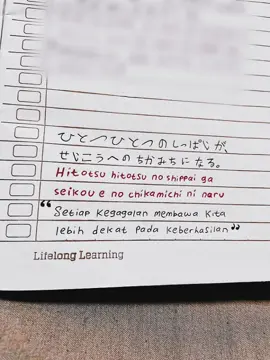 ひとつひとつのしっぱいが、
せいこうへのちかみちになる。
Hitotsu hitotsu no shippai ga
seikou e no chikamichi ni naru
“Setiap kegagalan membawa kita
lebih dekat pada keberhasilan”
Lifelong Learning